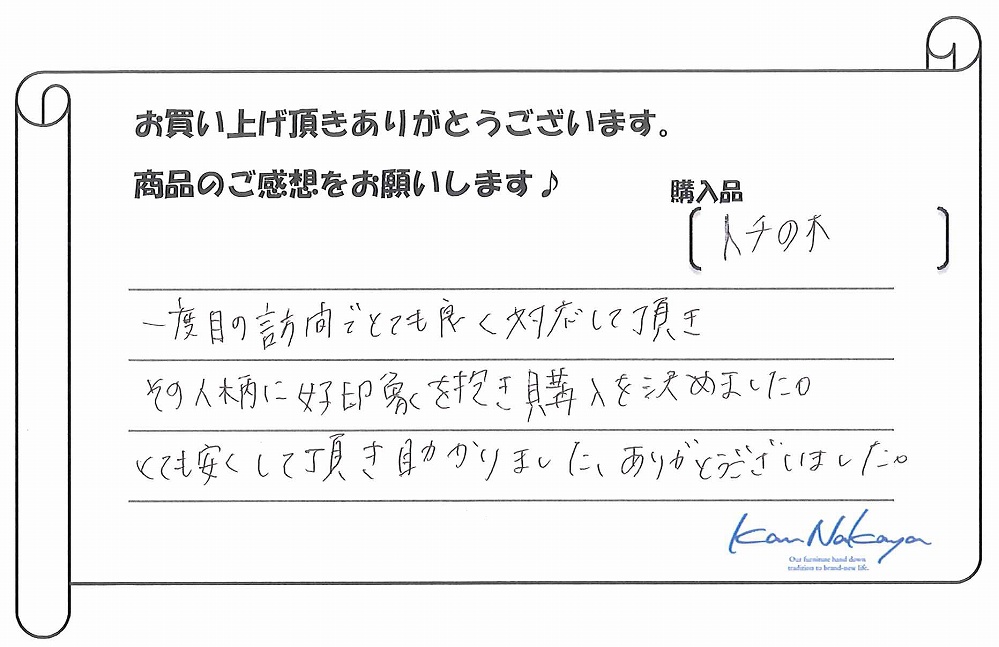 お買い上げ頂きありがとうございます。
商品のご感想をお願いします♪
購入品
トチの木
一度目の訪問でとても良く対応して頂き
その人柄に好印象を抱き購入を決めました。
とても安くして頂き助かりました、ありがとうございました。
Kan Nakaya
Our furniture hand down
tradition to brand-new life.